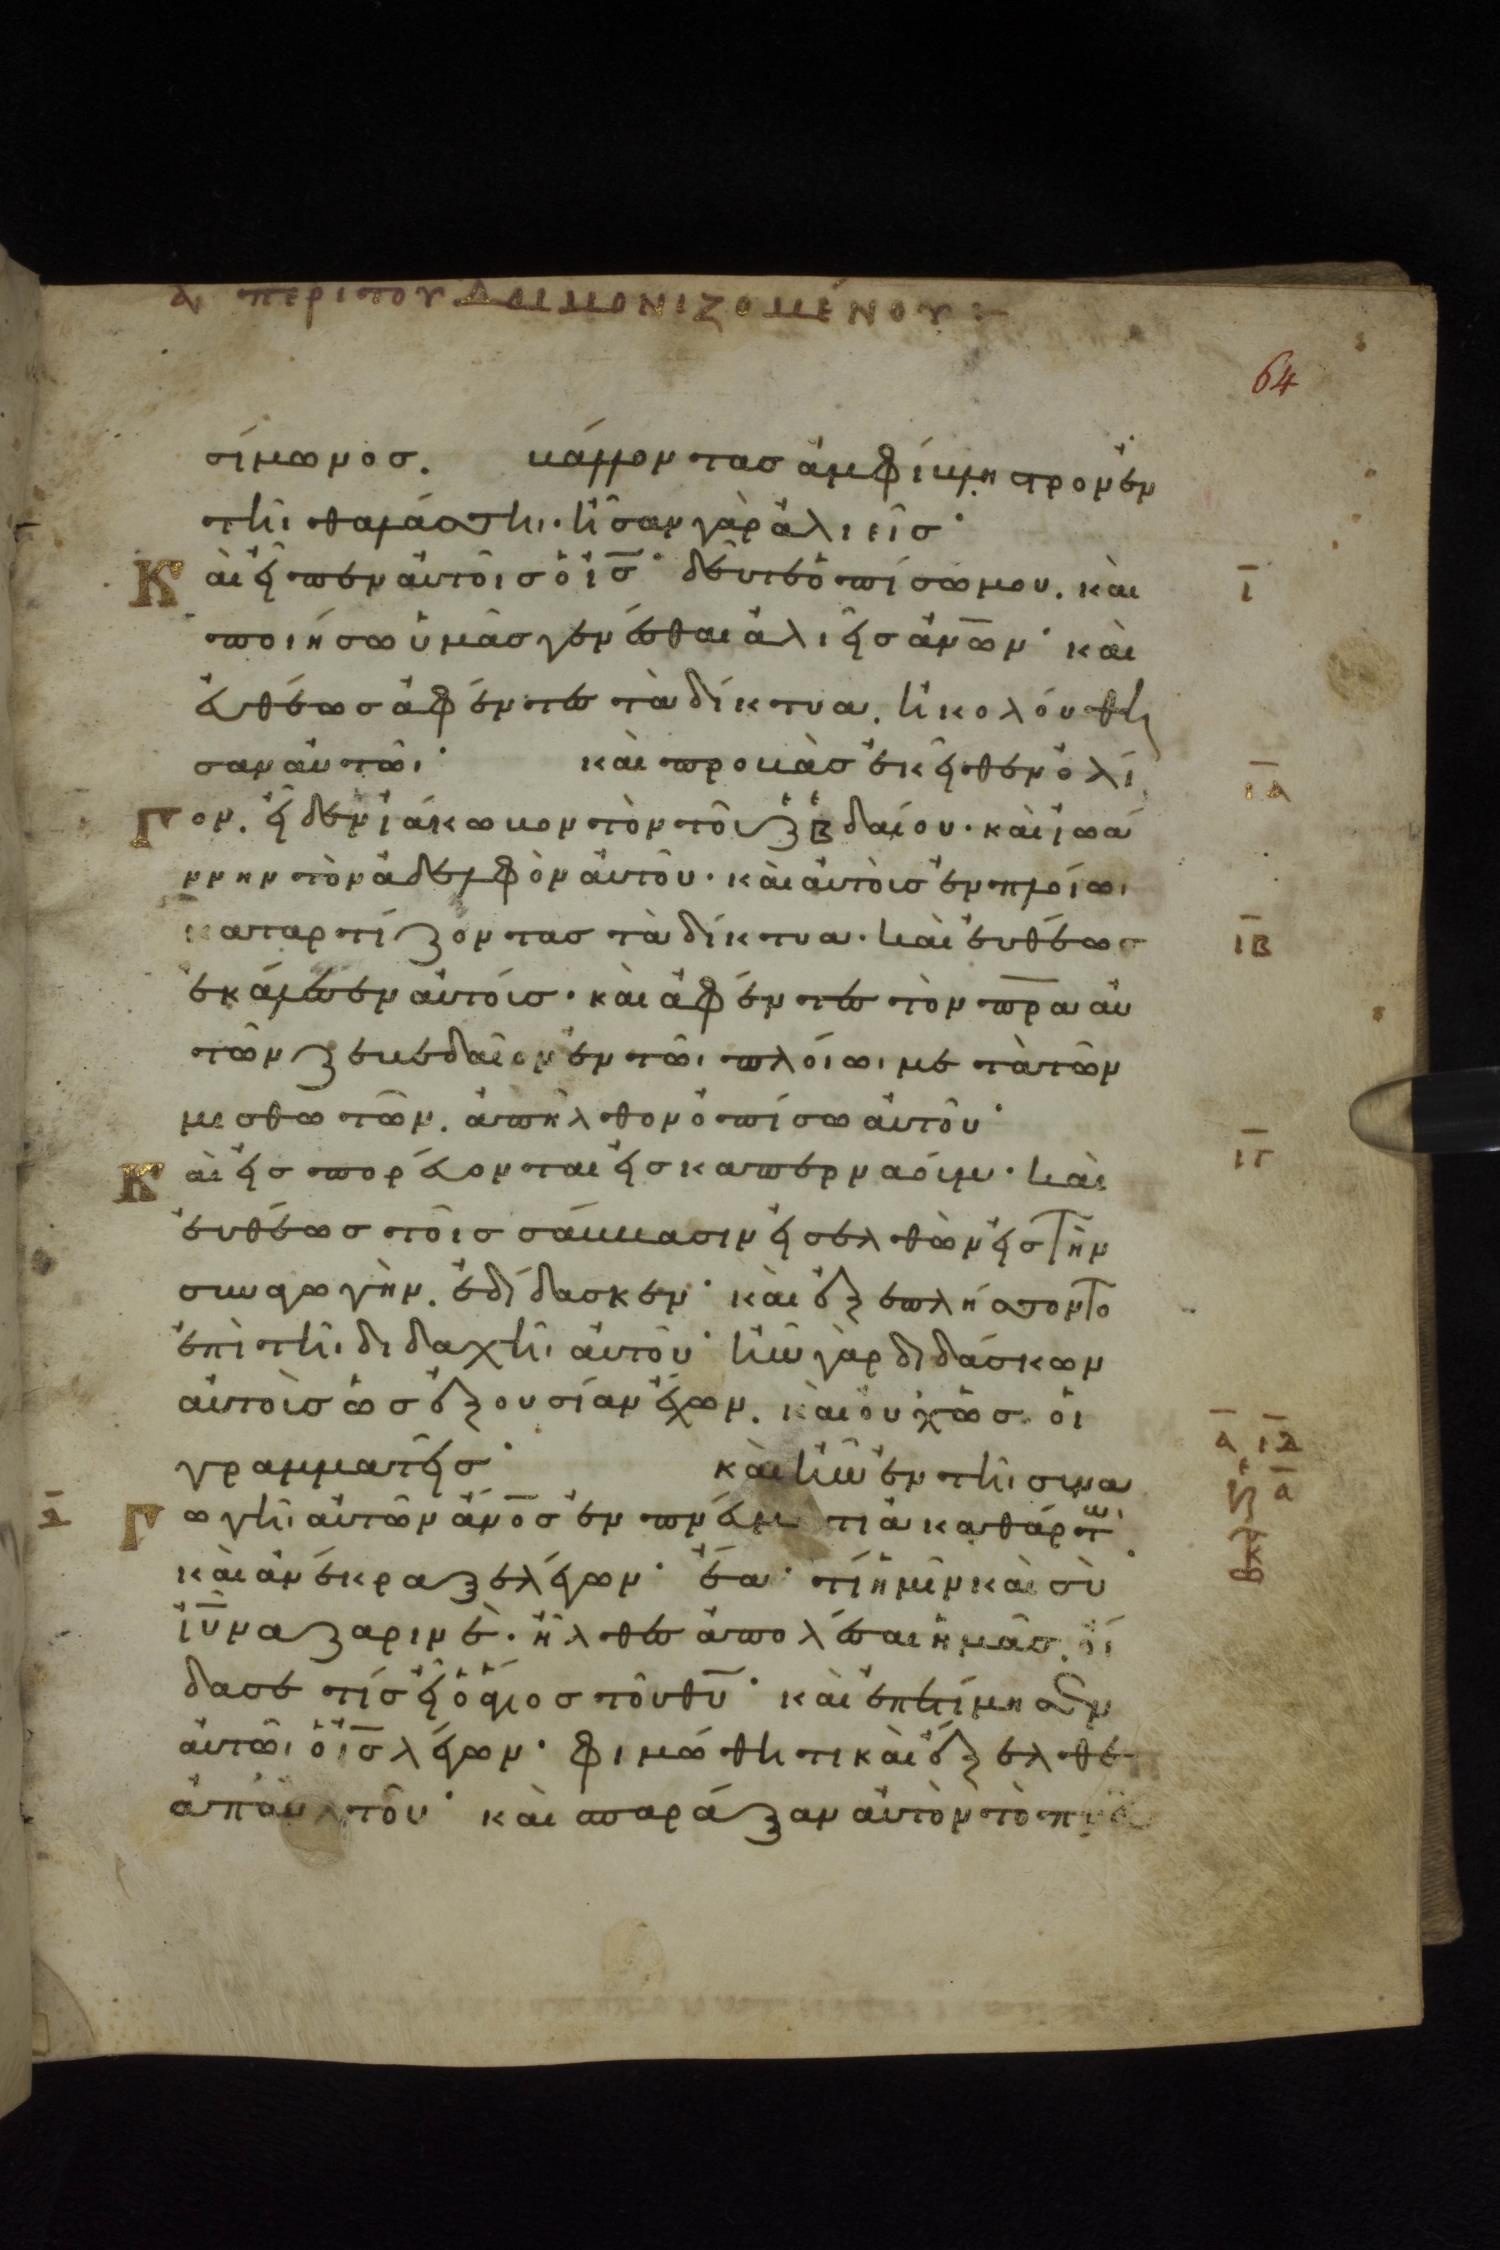 α περι του δαιμονιζομένου :–
64
σίμωνος. βάλλοντας ἀμφίβληστρον ἐν
τῆι θαλάσσηι· ἦσαν γὰρ ἁλιεῖς·
Κ αὶ εἶπεν αὐτοῖς ὁ ι̅ς̅· δεῦτε ὀπίσω μου. καὶ
ι̅
ποιήσω ὑμᾶς γενέσθαι ἁλιεῖς ἀν̅ω̅ν· καὶ
εὐθέως ἀφέντες τὰ δίκτυα. ἠκολούθη
σαν αὐτῶι· καὶ προβὰς ἐκεῖθεν ὀλί
ι̅α̅
Γ ον. εἶδεν ἰάκωβον τὸν τοῦ ζεβεδαίου· καὶ ἰωά
ννην τὸν ἀδελφὸν αὐτοῦ· καὶ αὐτοὶς ἐν πλοίωι
καταρτίζοντας τὰ δίκτυα· καὶ εὐθέως
ι̅β̅
ἐκάλεσεν αὐτοίς· καὶ ἀφέντες τὸν π̅ρ̅α αὐ
τῶν ζεβεδαῖον ἐν τῶι πλοίωι μετὰ τῶν
μισθωτῶν. ἀπῆλθον ὀπίσω αὐτοῦ·
Κ αὶ εἰσπορεύονται εἰς καπερναούμ· καὶ
ι̅γ̅
εὐθέως τοῖς σάββασιν εἰσελθὼν εἰς τὴν
συναγωγὴν. ἐδίδασκεν· καὶ ἐξεπλήσσοντο
ἐπὶ τῆι διδαχῆι αὐτοῦ· ἦν γὰρ διδάσκων
αὐτοὶς ὡς ἐξουσίαν ἔχων. καὶ οὐχ ὡς οἱ
γραμματεῖς· καὶ ἦν ἐν τῆι συνα
α̅ ι̅δ̅
Γ ωγῆι αὐτῶν ἄν̅ο̅ς ἐν πνεύματι ἀκαθάρτω·
καὶ ἀνέκραξε λέγων· ἔα· τί ἡμῖν καὶ σὺ
ἰ̅υ̅ ναζαρινὲ· ἦλθες ἀπολέσαι ἡμᾶς. οἴ
δασε τίς εἶ ὁ ἅγιος τοῦ θ̅υ̅· καὶ ἐπετίμησεν
αὐτῶι ὁ ι̅ς̅ λέγων· φιμώθητι καὶ ἔξελθε
ἀπ' αὐτοῦ· καὶ σπαράξαν αὐτὸν τὸ